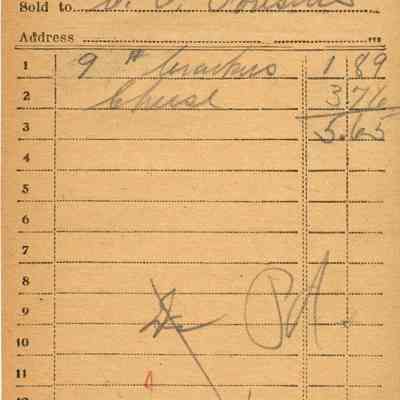 Sold to
Address
1 9 # Crackers 1 89
2 Cheese 3 76
3 5.65
4
5
6
7
8
9
10
11
12